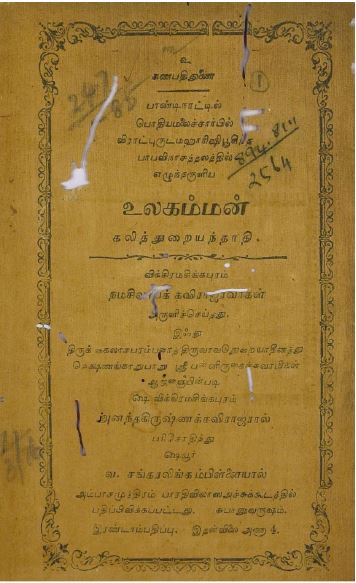 உ
கணபதிதுணை
பாண்டிநாட்டில்
பொதியமலைச்சார்பில்
விராட்புருடமஹாரிஷிபூசித்த
பாபவிநாசத்தலத்தில்
எழுந்தருளிய
உலகம்மன்
கலித்துறையந்தாதி.
விக்கிரமசிங்கபுரம்
நமசிவாயக் கவிராஜரவர்கள்
அருளிச்செய்தது.
இஃது
திருக் கைலாசபரம்பரைத் திருவாவடுதுறையாதீனத்து
ஸ்ரீ
விக்கிரமசிங்கபுரம்
அனந்தகிருஷ்ணக்கவிராஜரால்
பரிசோதித்து
வ. சங்கரலிங்கம்பிள்ளையால்
அம்பாசமுத்திரம் பாரதிவிலாஸஅச்சுக்கூடத்தில்
பதிப்பிக்கப்பட்டது. சுபானுவருஷம்.
இரண்டாம்பதிப்பு. இதன்விலை அணா
247
894.811
2564
1